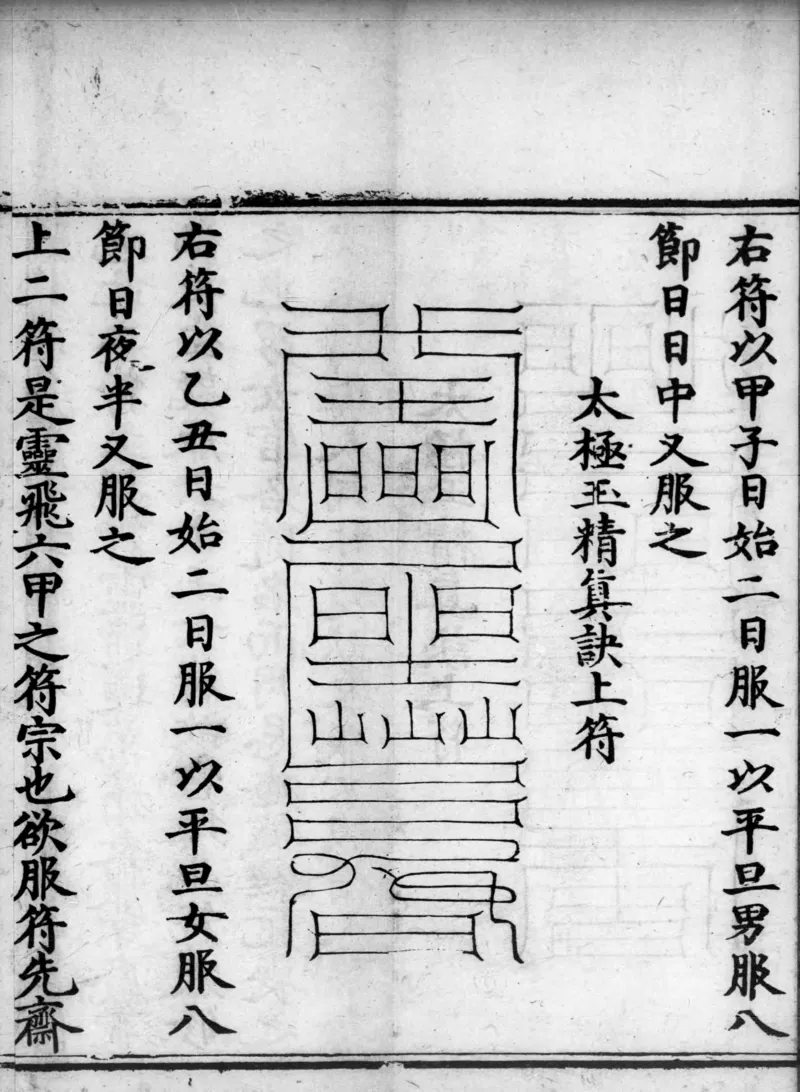 右符以甲子日始二日服一以平旦男服八
節日日中又服之
太極玉精真訣上符
右符以乙丑日始二日服一以平旦女服八
節日夜半又服之
上二符是靈飛六甲之符宗也欲服符先齋